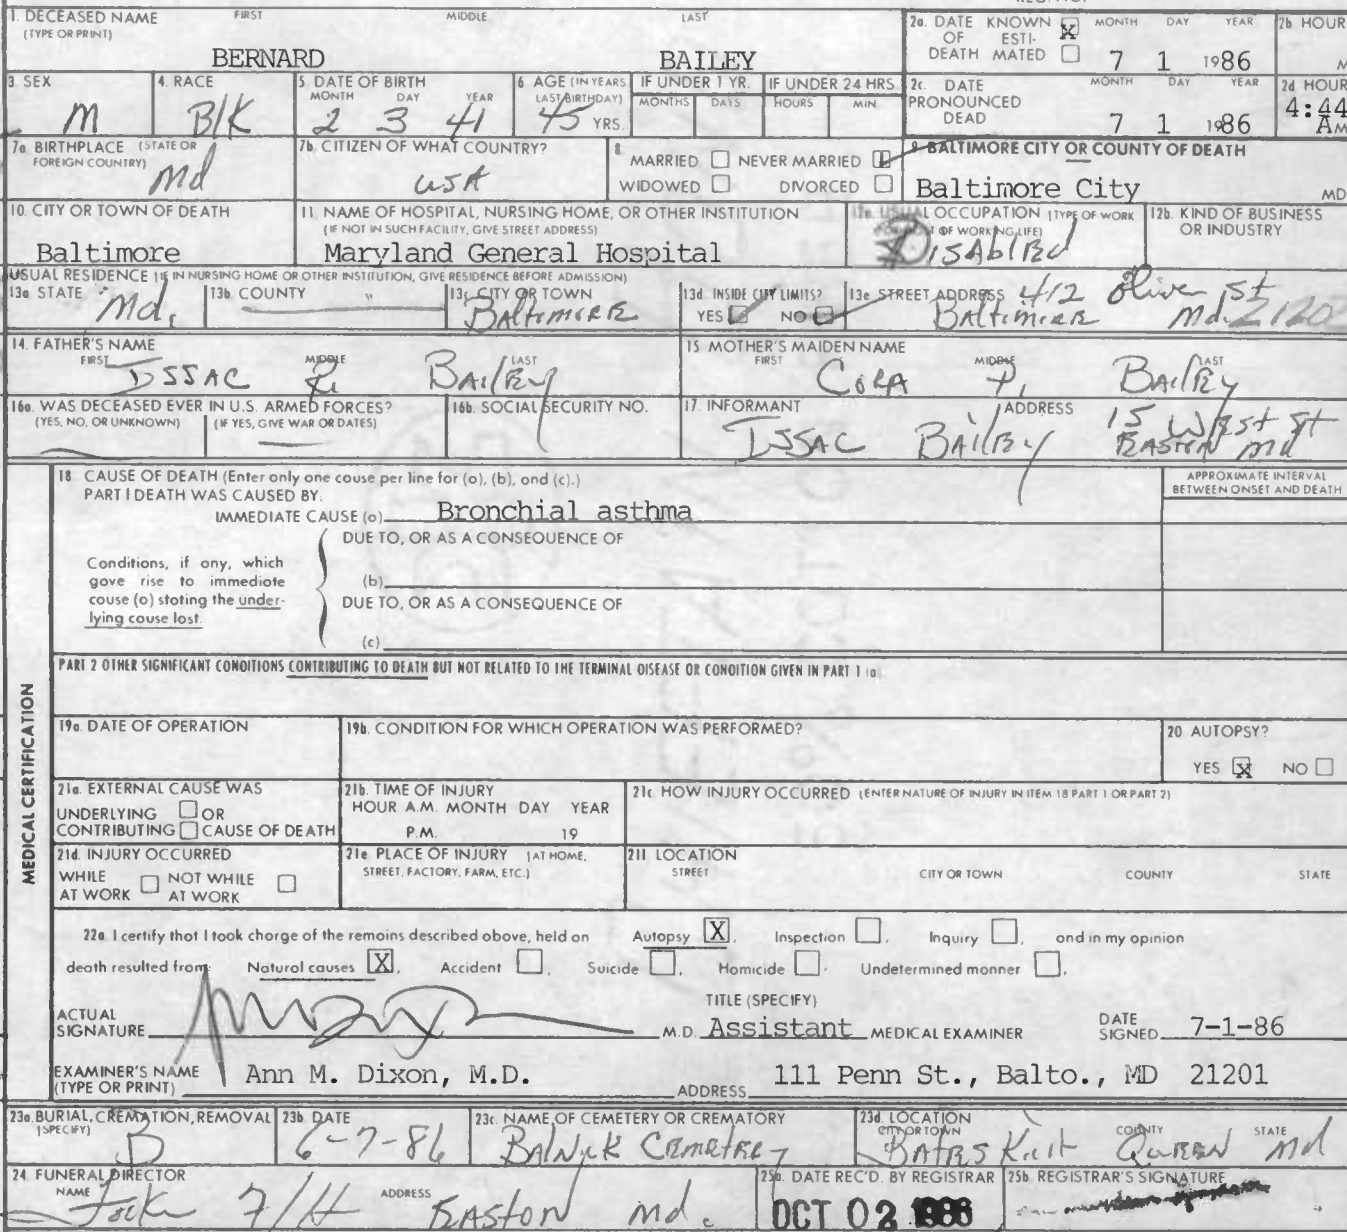 1. DECEASED NAME (TYPE OR PRINT) FIRST MIDDLE LAST
BERNARD BAILEY
2a. DATE OF DEATH KNOWN X ESTI-MATED MONTH DAY YEAR
7 1 1986
2b HOUR M
3 SEX
M
4. RACE
Blk
5. DATE OF BIRTH MONTH DAY YEAR
2 3 41
6 AGE (IN YEARS LAST BIRTHDAY)
45 YRS.
IF UNDER 1 YR. MONTHS DAYS
IF UNDER 24 HRS HOURS MIN.
2c. DATE PRONOUNCED DEAD MONTH DAY YEAR
7 1 1986
2d HOUR
4:44 AM
7a. BIRTHPLACE (STATE OR FOREIGN COUNTRY)
Md
7b. CITIZEN OF WHAT COUNTRY?
USA
8 MARRIED NEVER MARRIED
WIDOWED DIVORCED
9 BALTIMORE CITY OR COUNTY OF DEATH
Baltimore City MD
10. CITY OR TOWN OF DEATH
Baltimore
11. NAME OF HOSPITAL, NURSING HOME, OR OTHER INSTITUTION
(IF NOT IN SUCH FACILITY, GIVE STREET ADDRESS)
Maryland General Hospital
OCCUPATION (TYPE OF WORK
OF WORKING LIFE)
DISAblEd
12b. KIND OF BUSINESS OR INDUSTRY
USUAL RESIDENCE (IF IN NURSING HOME OR OTHER INSTITUTION, GIVE RESIDENCE BEFORE ADMISSION)
13a STATE
Md.
13b COUNTY
13c CITY OR TOWN
BAltimoRE
13d. INSIDE CITY LIMITS?
YES NO
13e STREET ADDRESS 412 Oliver St
BAltimoRE Md.
14. FATHER'S NAME FIRST MIDDLE LAST
ISSAC BAilEy
15 MOTHER'S MAIDEN NAME FIRST MIDDLE LAST
CoRA P. BAilEy
16a. WAS DECEASED EVER IN U.S. ARMED FORCES?
(YES, NO, OR UNKNOWN) (IF YES, GIVE WAR OR DATES)
16b. SOCIAL SECURITY NO.
17. INFORMANT ADDRESS
ISSAC BAilEy 15 WEst St
EASTON Md
18 CAUSE OF DEATH (Enter only one couse per line for (o), (b), ond (c).)
PART I DEATH WAS CAUSED BY:
IMMEDIATE CAUSE (o) Bronchial asthma
APPROXIMATE INTERVAL BETWEEN ONSET AND DEATH
DUE TO, OR AS A CONSEQUENCE OF
Conditions, if ony, which
gove rise to immediote
couse (o) stoting the under-
lying couse lost.
(b)
DUE TO, OR AS A CONSEQUENCE OF
(c)
PART 2 OTHER SIGNIFICANT CONDITIONS CONTRIBUTING TO DEATH BUT NOT RELATED TO THE TERMINAL DISEASE OR CONDITION GIVEN IN PART 1 (a)
MEDICAL CERTIFICATION
19a. DATE OF OPERATION
19b. CONDITION FOR WHICH OPERATION WAS PERFORMED?
20 AUTOPSY?
YES X NO
21a. EXTERNAL CAUSE WAS
UNDERLYING OR
CONTRIBUTING CAUSE OF DEATH
21b. TIME OF INJURY
HOUR A.M. MONTH DAY YEAR
P.M. 19
21c HOW INJURY OCCURRED (ENTER NATURE OF INJURY IN ITEM 18 PART 1 OR PART 2)
21d. INJURY OCCURRED
WHILE AT WORK NOT WHILE AT WORK
21e PLACE OF INJURY (AT HOME, STREET, FACTORY, FARM, ETC.)
21f LOCATION
STREET CITY OR TOWN COUNTY STATE
22a I certify thot I took chorge of the remoins described obove, held on Autopsy X, Inspection , Inquiry , ond in my opinion
deoth resulted from: Noturol couses X, Accident , Suicide , Homicide , Undetermined monner .
ACTUAL SIGNATURE M.D.
TITLE (SPECIFY)
Assistant MEDICAL EXAMINER
DATE SIGNED 7-1-86
EXAMINER'S NAME (TYPE OR PRINT) Ann M. Dixon, M.D.
ADDRESS 111 Penn St., Balto., MD 21201
23a. BURIAL, CREMATION, REMOVAL (SPECIFY)
B
23b DATE
6-7-86
23c. NAME OF CEMETERY OR CREMATORY
CEmetREy
23d. LOCATION CITY OR TOWN COUNTY STATE
QuREEN Md
24 FUNERAL DIRECTOR NAME ADDRESS
F/H EASton Md.
25a. DATE REC'D. BY REGISTRAR
OCT 02 1986
25b. REGISTRAR'S SIGNATURE